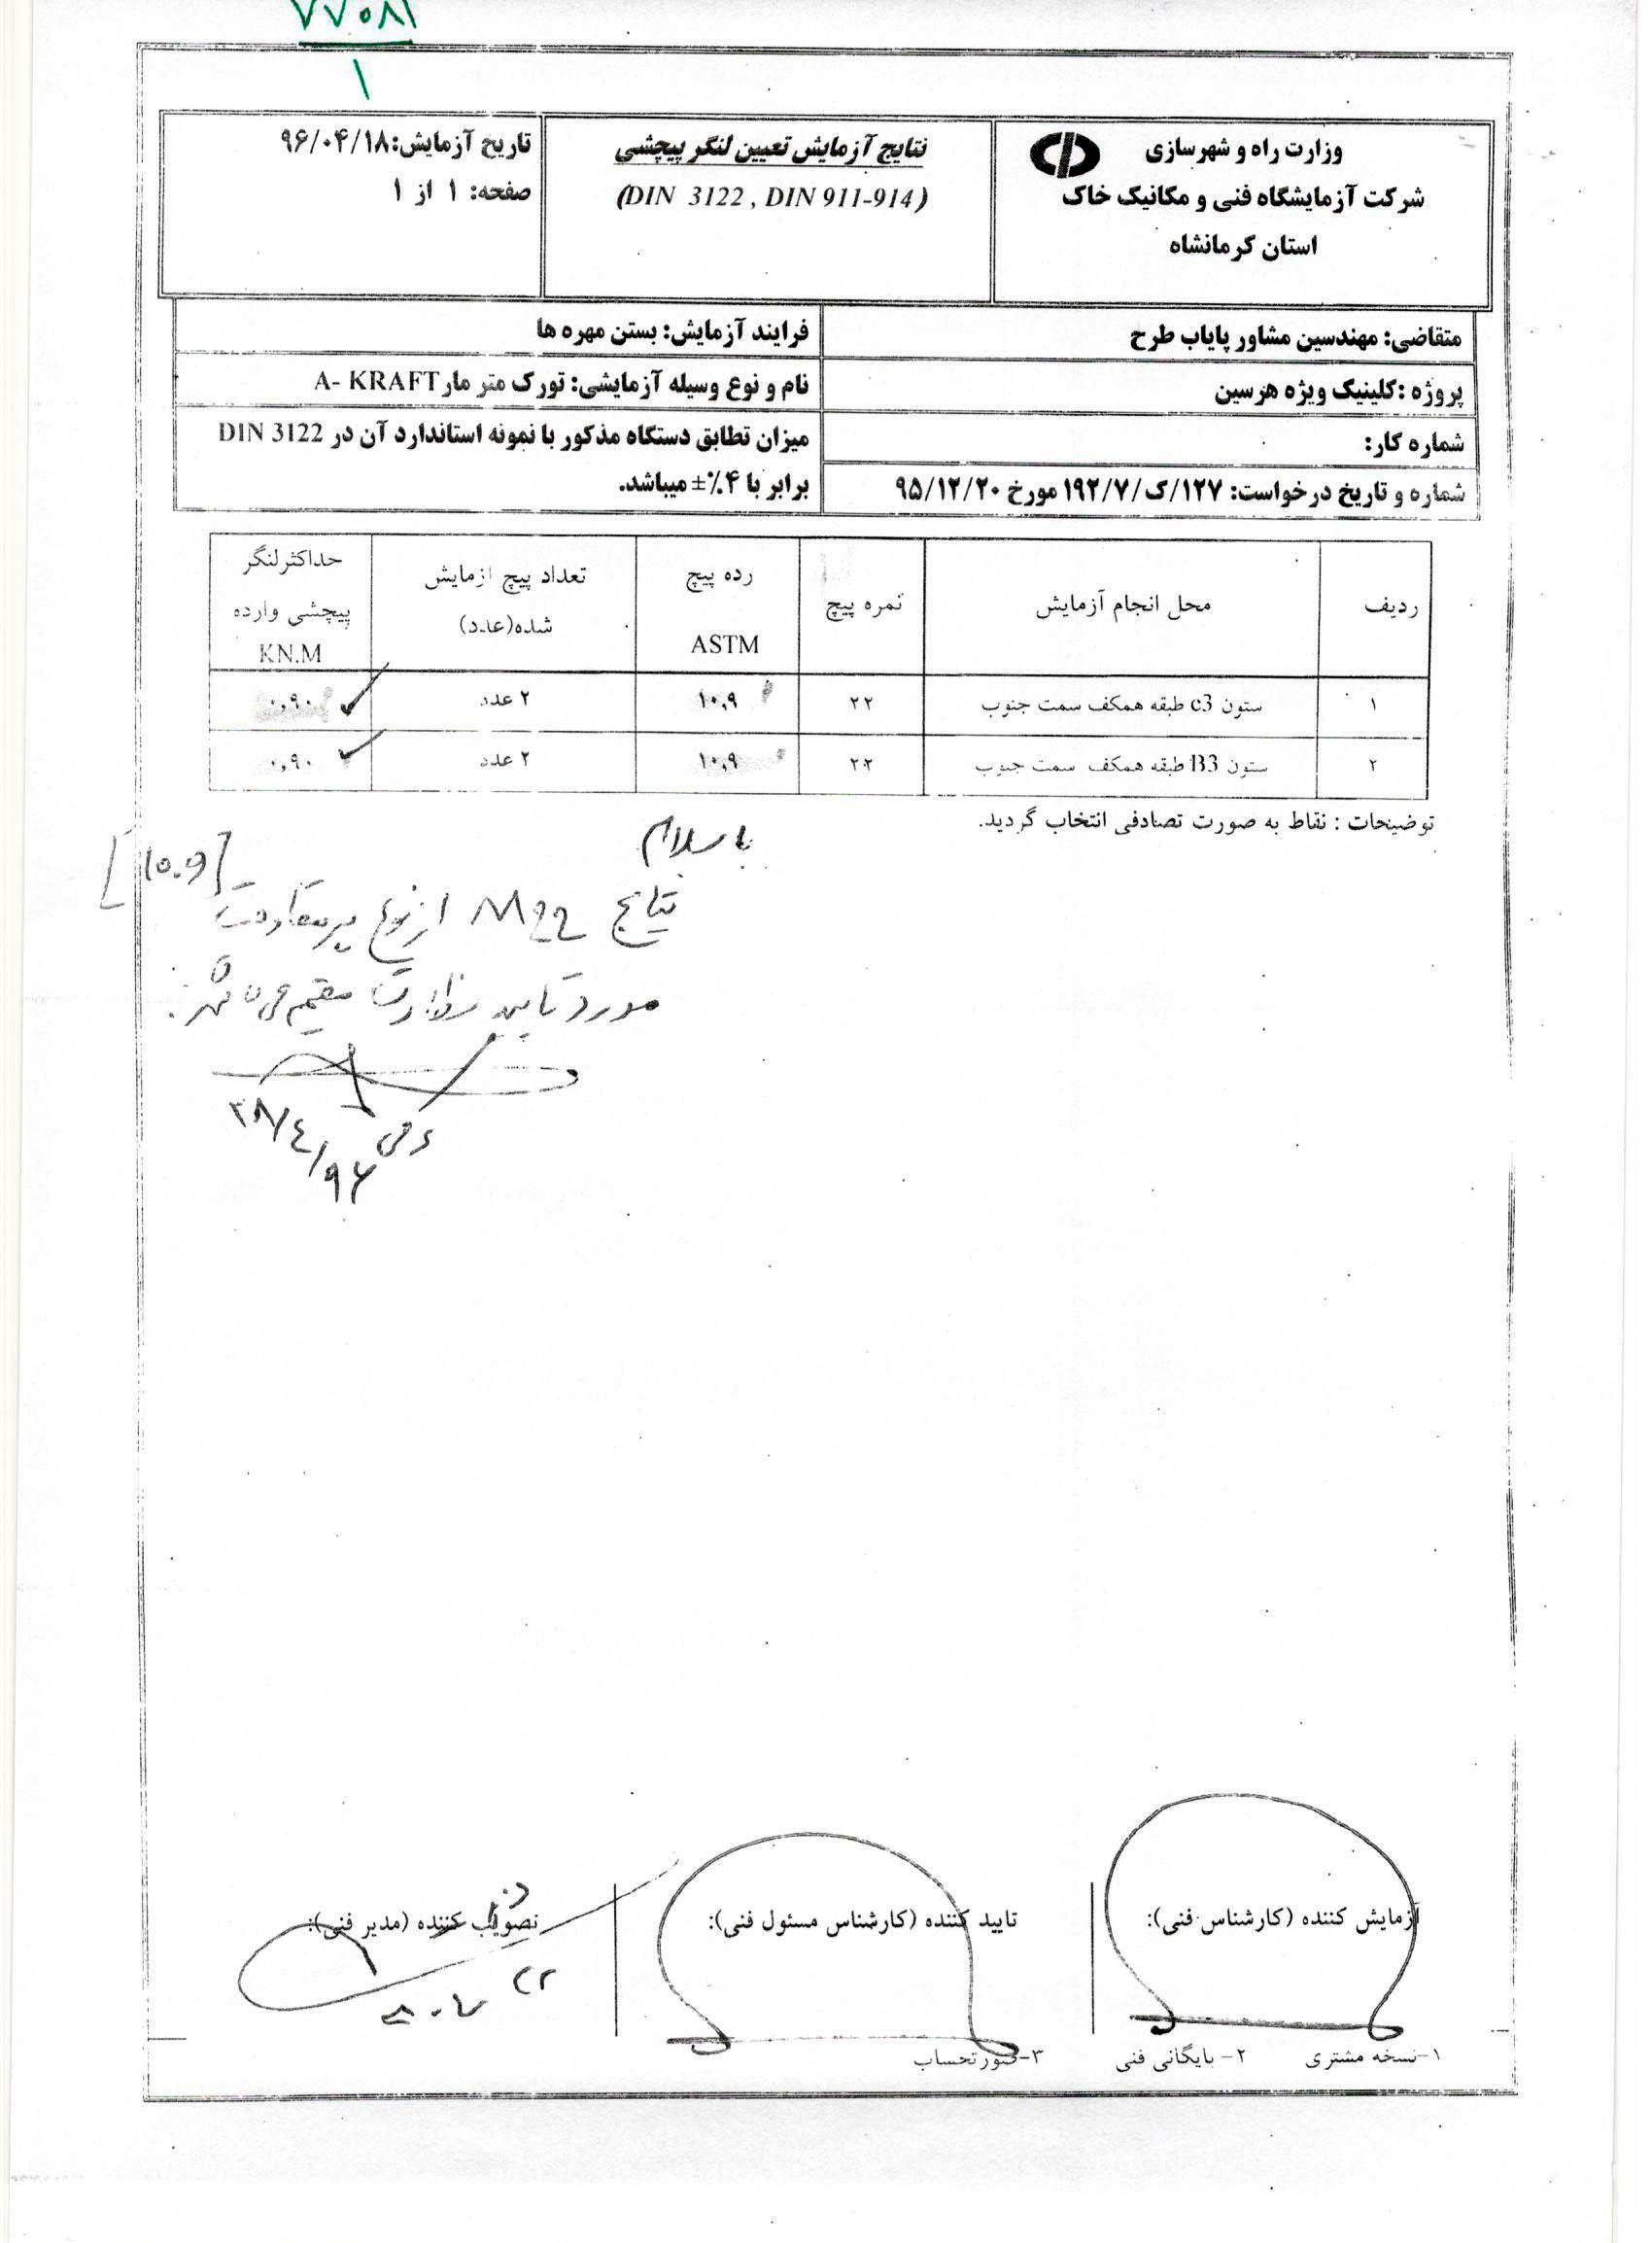 ۷۷۰۸۱
۱
وزارت راه و شهرسازی
شرکت آزمایشگاه فنی و مکانیک خاک
استان کرمانشاه
نتایج آزمایش تعیین لنگر پیچشی
(DIN 3122 , DIN 911-914)
تاریخ آزمایش:۹۶/۰۴/۱۸
صفحه: ۱ از ۱
متقاضی: مهندسین مشاور پایاب طرح
فرایند آزمایش: بستن مهره ها
پروژه :کلینیک ویژه هرسین
نام و نوع وسیله آزمایشی: تورک متر مار A- KRAFT
شماره کار:
میزان تطابق دستگاه مذکور با نمونه استاندارد آن در DIN 3122
برابر با ۴٪± میباشد.
شماره و تاریخ درخواست: ۱۲۷/ک/۱۹۲/۷ مورخ ۹۵/۱۲/۲۰
ردیف محل انجام آزمایش نمره پیچ رده پیچ ASTM تعداد پیچ ازمایش شده(عدد) حداکثرلنگر پیچشی وارده KN.M
۱ ستون c3 طبقه همکف سمت جنوب ۲۲ ۱۰,۹ ۲ عدد ۰,۹۰
۲ ستون B3 طبقه همکف سمت جنوب ۲۲ ۱۰,۹ ۲ عدد ۰,۹۰
توضیحات : نقاط به صورت تصادفی انتخاب گردید.
با سلام
نتایج M22 از نوع پرمقاومت [10.9]
مورد تایید نظارت مقیم می باشد.
۲۸/۴/۹۶
آزمایش کننده (کارشناس فنی):
تایید کننده (کارشناس مسئول فنی):
تصویب کننده (مدیر فنی):
۱-نسخه مشتری ۲- بایگانی فنی ۳-صورتحساب